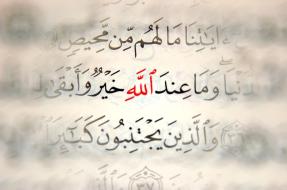 ءَايَٰتِنَا مَا لَهُم مِّن مَّحِيصٍ
نْيَا ۖ وَمَا عِندَ ٱللَّهِ خَيْرٌ وَأَبْقَىٰ
وَٱلَّذِينَ يَجْتَنِبُونَ كَبَٰٓئِرَ
٣٧